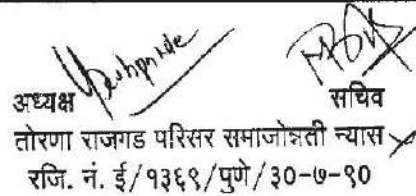 अध्यक्ष सचिव
तोरणा राजगड परिसर समाजोन्नती न्यास
रजि. नं. ई/१३६९/पुणे/३०-७-९०